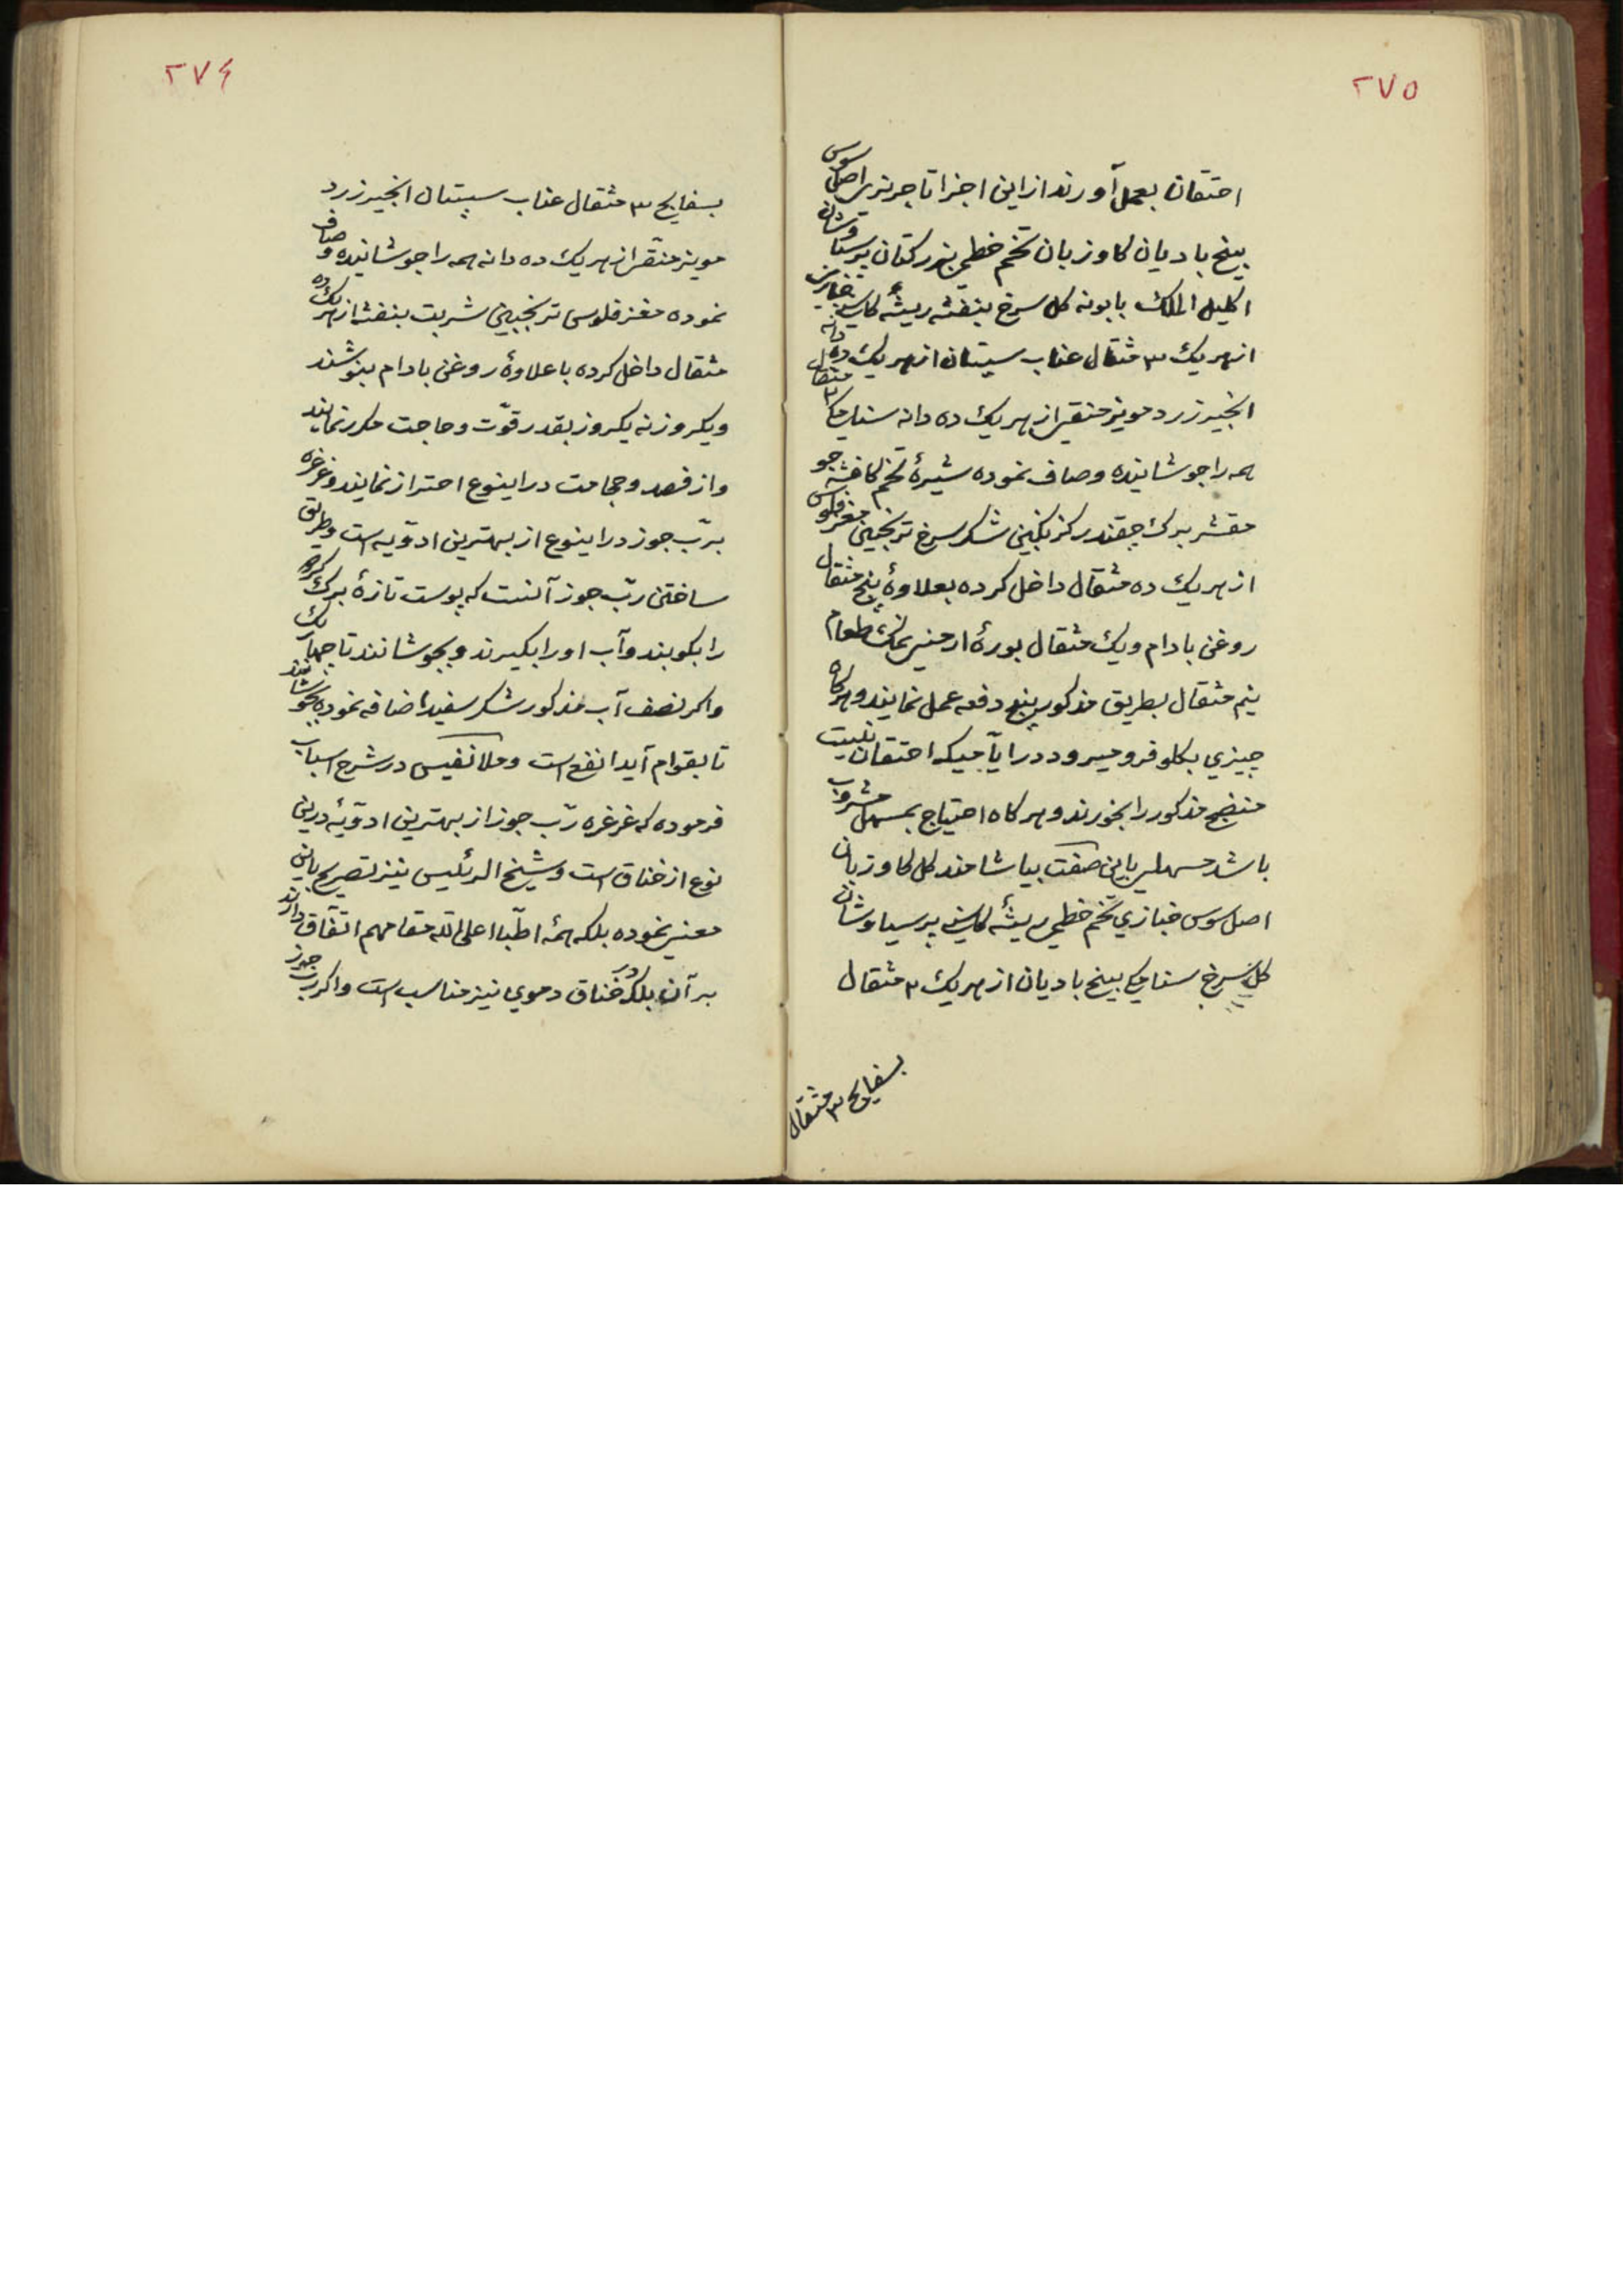 ٢٧٥
احتقان بعمل آورند از این اجزا تاجریزی اصل سوس
بیخ بادیان کاوزبان تخم خطمی بزرکتان پرسیاوشان
اکلیل الملک بابونه کل سرخ بنفشه ریشهٔ کاسنی خبازی
از هریک ٣ مثقال عناب سپستان از هریک ده دانه
انجیر زرد مویز منقی از هریک ده دانه سنامکی ٣ مثقال
همه را جوشانیده و صاف نموده شیرهٔ تخم کافشه جو
مقشر برک چقندر کزنکبین شکر سرخ ترنجبین مغز فلوس
از هریک ده مثقال داخل کرده بعلاوهٔ پنج مثقال
روغن بادام و یک مثقال بورهٔ ارمنی نمک طعام
نیم مثقال بطریق مذکور پنج دفعه عمل نمایند و هرکاه
چیزی بکلو فرو میرود در ایامیکه احتقان نیست
منضج مذکور را بخورند و هرکاه احتیاج بمسهل مشروب
باشد مسهلی باین صفت بیاشامند کل کاوزبان
اصل سوس خبازی تخم خطمی ریشهٔ کاسنی پرسیاوشان
کل سرخ سنامکی بیخ بادیان از هریک ٢ مثقال
بسفایج ٣ مثقال
٢٧٤
بسفایج ٣ مثقال عناب سپستان انجیر زرد
مویز منقی از هریک ده دانه همه را جوشانیده و صاف
نموده مغز فلوس ترنجبین شربت بنفشه از هریک ده
مثقال داخل کرده با علاوهٔ روغن بادام بنوشند
و یکروز نه یکروز بقدر قوّت و حاجت مکرر نمایند
و از فصد و حجامت در اینوع احتراز نمایند و غرغره
بربّ جوز در اینوع از بهترین ادویه است و طریق
ساختن ربّ جوز آنست که پوست تازهٔ برک کردو
را بکوبند و آب او را بکیرند و بجوشانند تا چهار یک
و اکر نصف آب مذکور شکر سفید اضافه نموده بجوشانند
تا بقوام آید انفع است و ملا نفیس در شرح اسباب
فرموده که غرغره ربّ جوز از بهترین ادویهٔ درین
نوع از خناق است و شیخ الرئیس نیز تصریح باین
معنی نموده بلکه همهٔ اطبّا اعلی الله مقامهم اتفاق دارند
بر آن بلکه در خناق دموی نیز مناسب است و اکر ربّ جوز